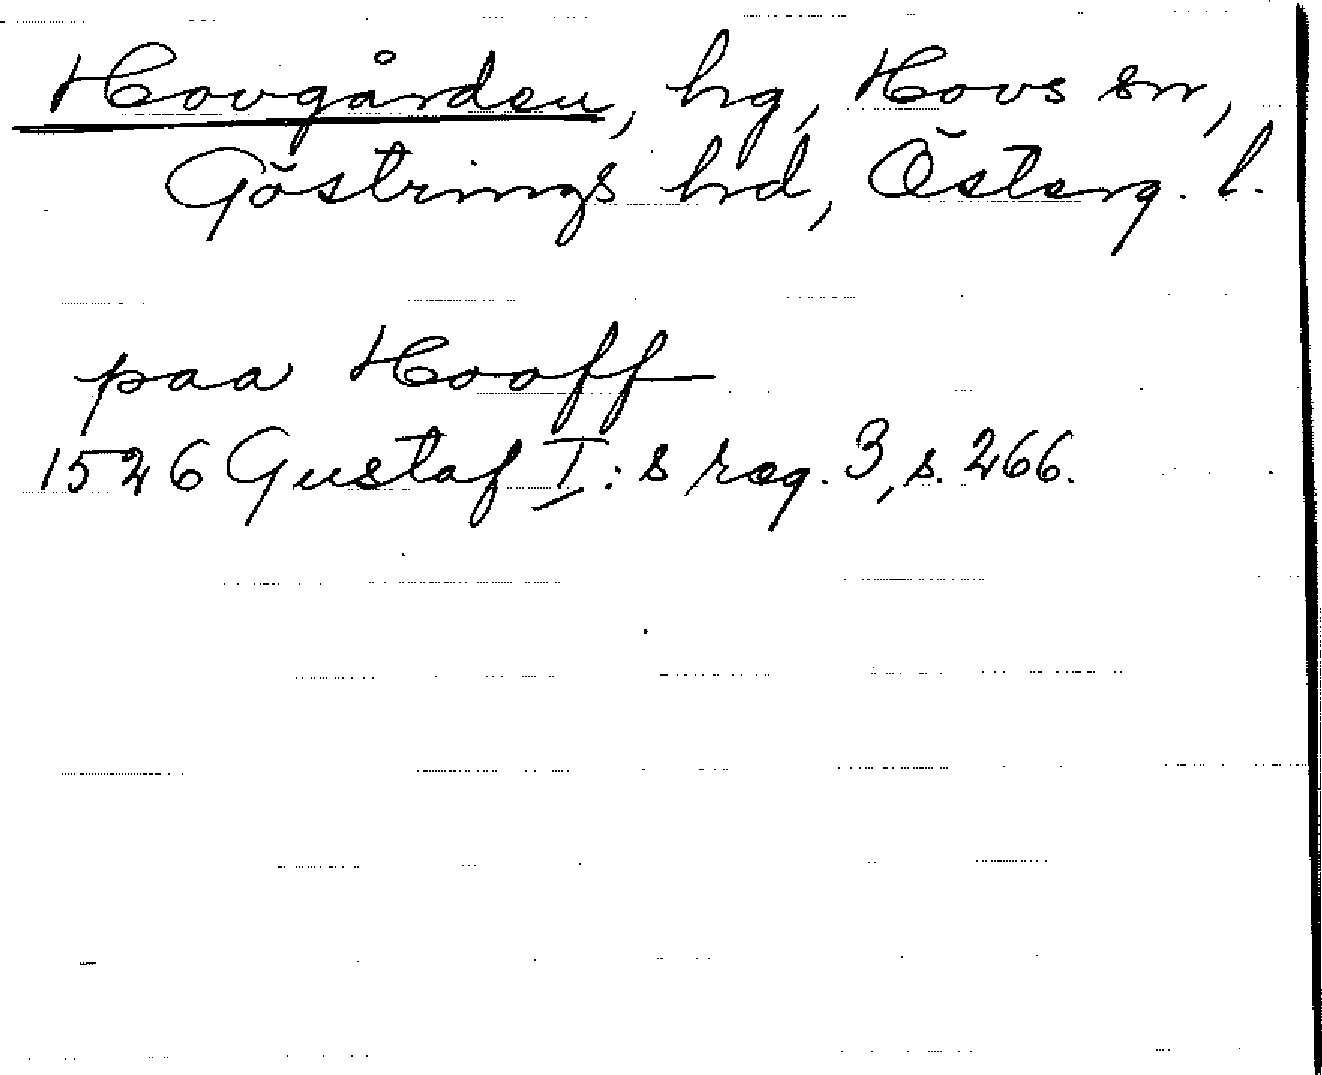 Hovgården, hg, Hovs sn,
Göstrings hrd, Österg. l.
paa Hooff
1526 Gustaf I:s reg. 3, s. 266.